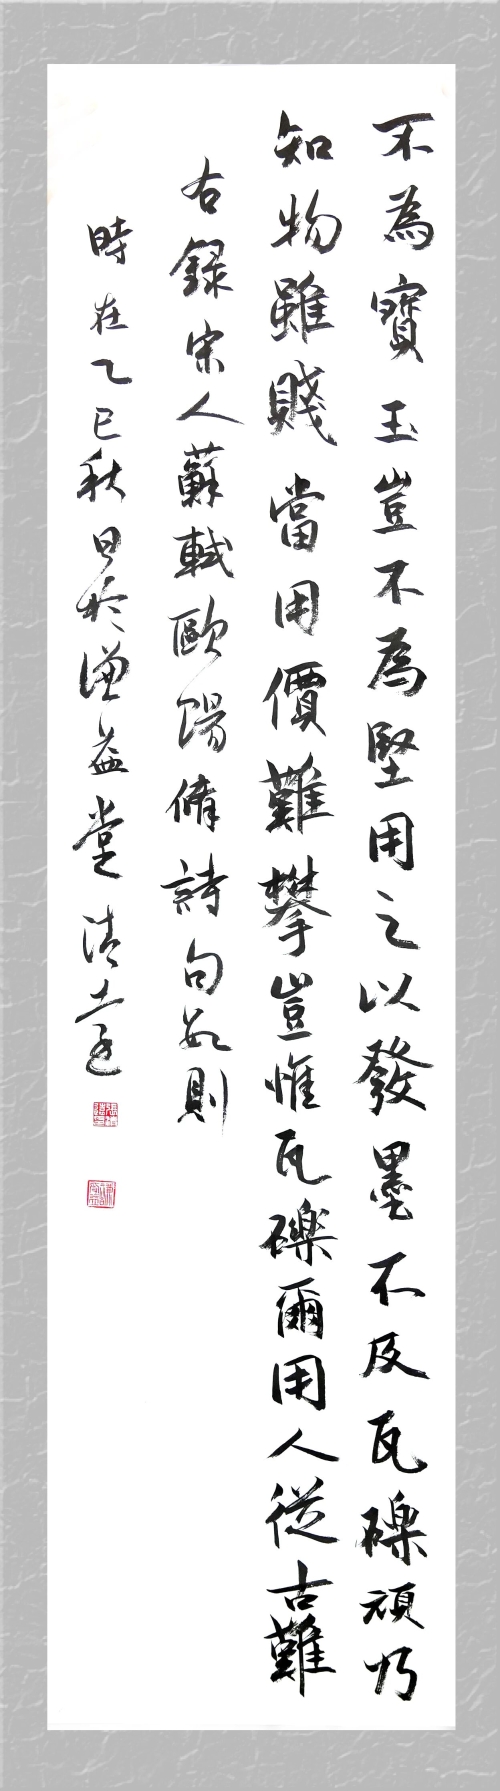 不為寶玉豈不為堅用之以發墨不及瓦礫頑乃
知物雖賤當用價難攀豈惟瓦礫爾用人從古難
右錄宋人蘇軾歐陽脩詩句數則
時在乙巳秋日於謙益堂清